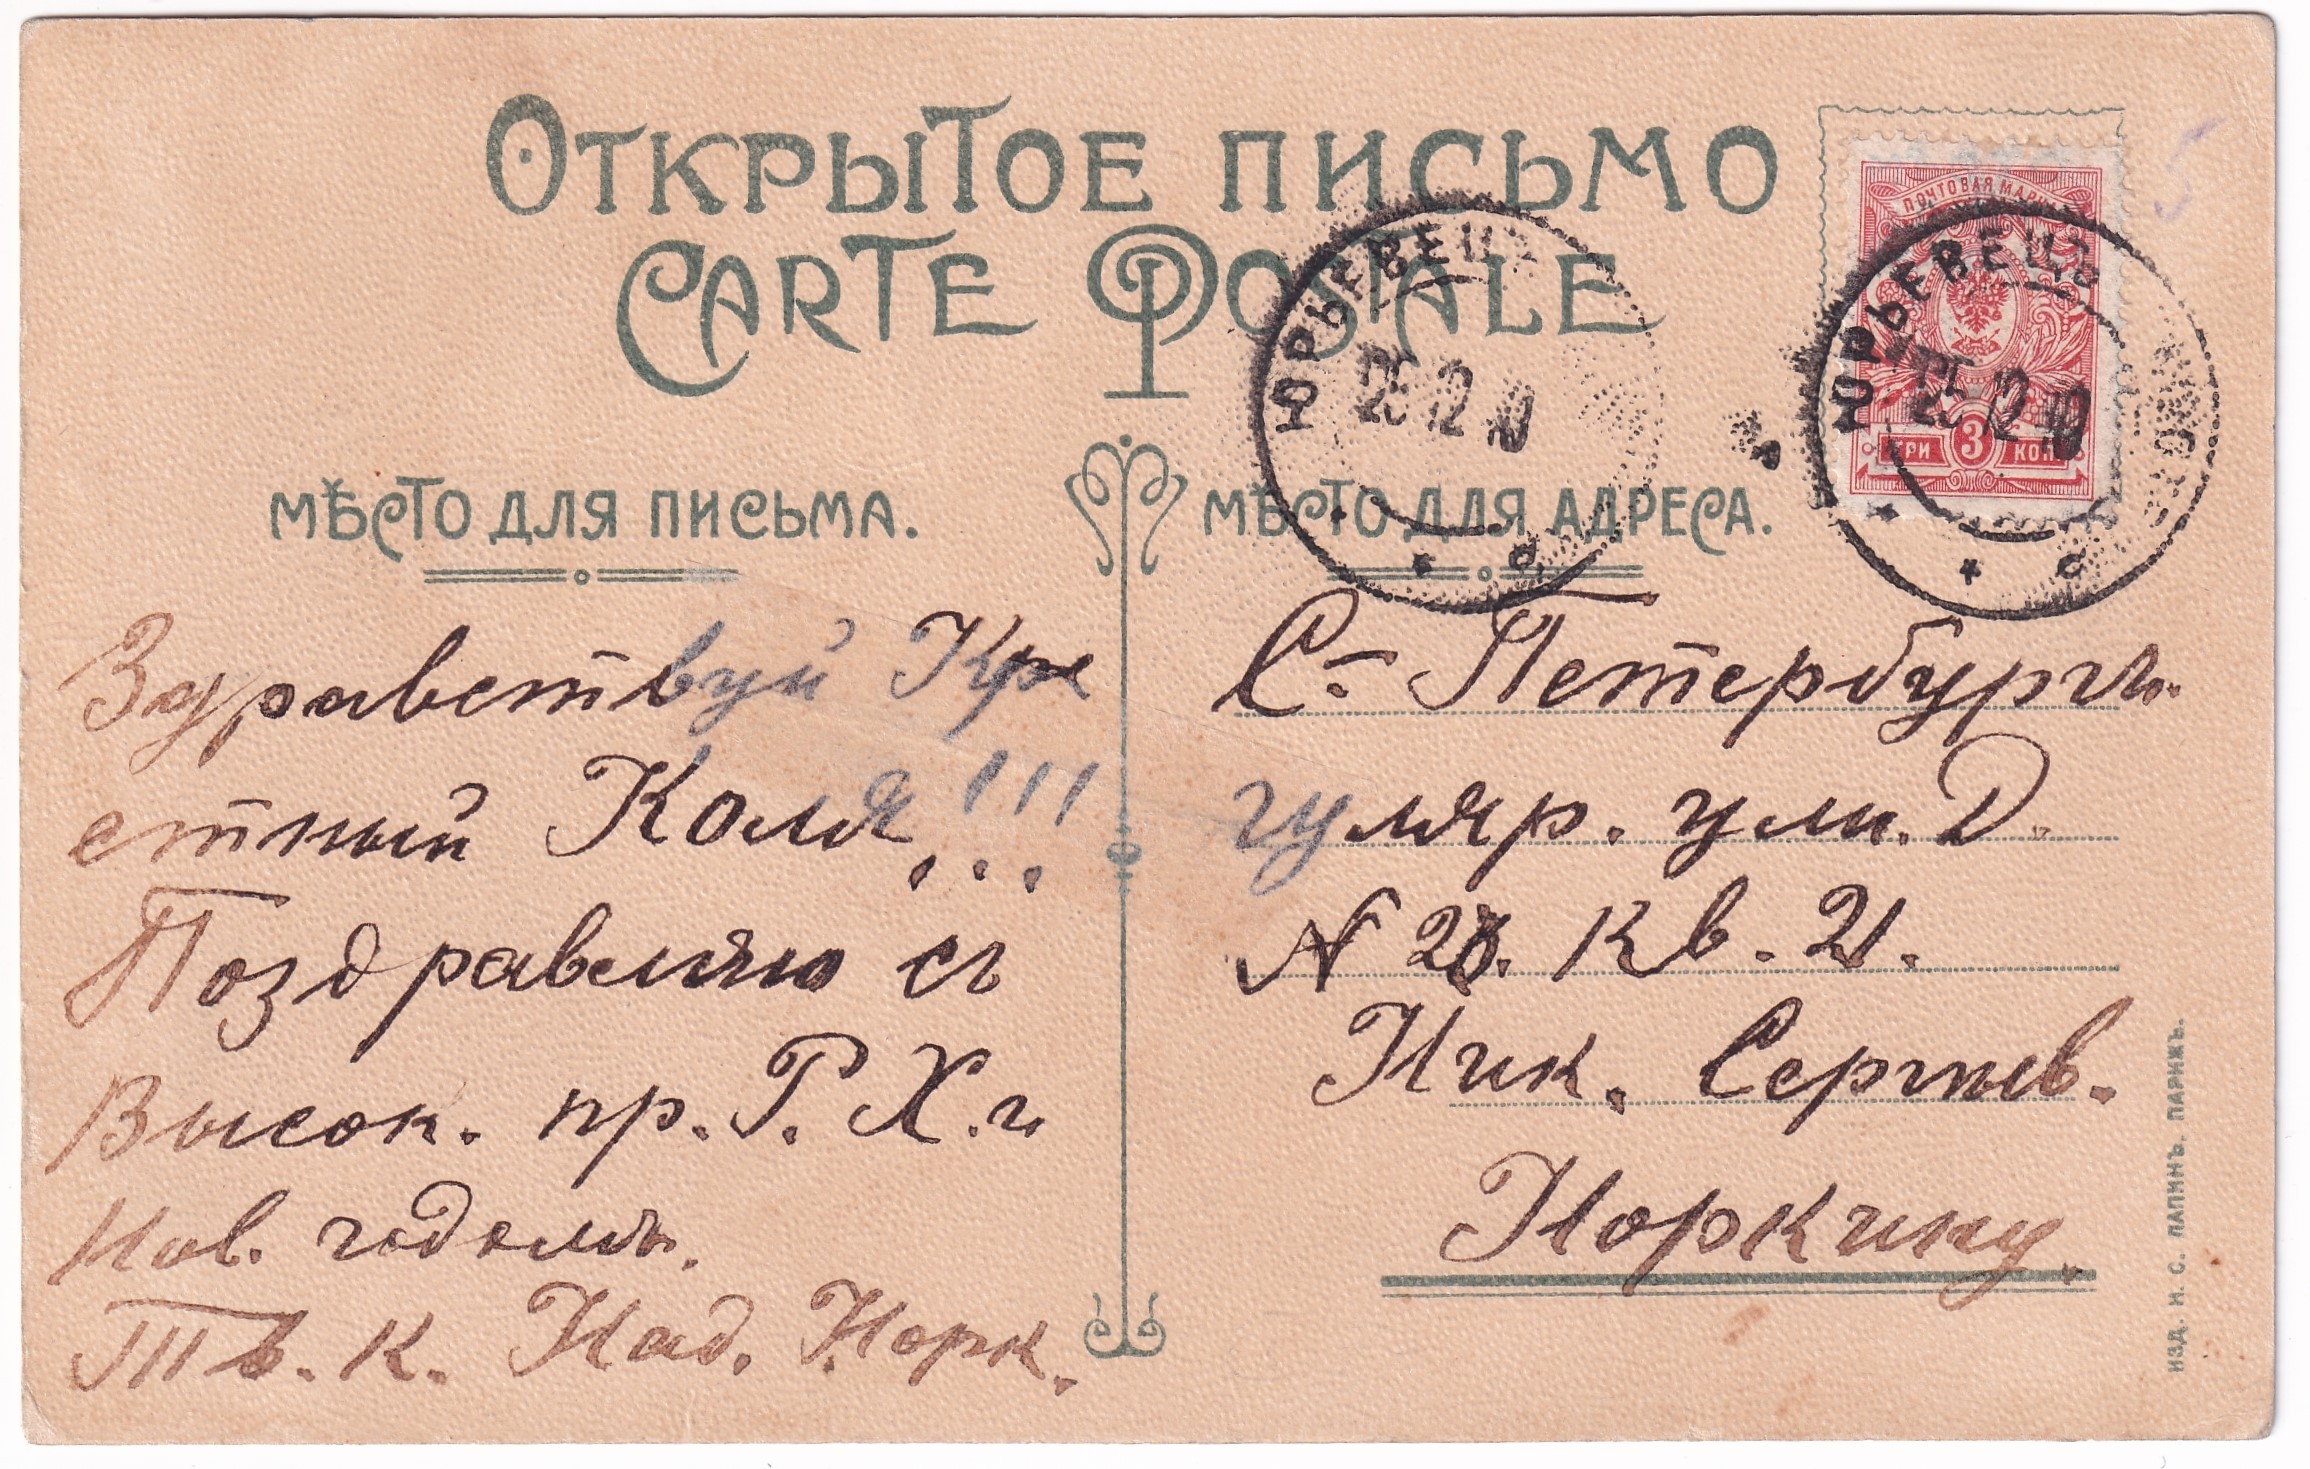 Открытое письмо
Carte Postale
Мѣсто для письма.
Здравствуй Кре
стный Коля!!!
Поздравляю съ
Высок. пр. Р. Х. и
Нов. годомъ.
Тв. К. Над. Норк.
Мѣсто для адреса.
С-Петербургъ.
гулярн. ули. Д.
N 2 кв. 21.
Ник. Сергѣев.
Норкину.
ПОЧТОВАЯ МАРКА
ТРИ 3 КОП
ЮРЬЕВЕЦЪ
25 12 10
ЮРЬЕВЕЦЪ
25 12 10
5
ИЗД. И. С. ЛАПИНЪ. ПАРИЖЪ.